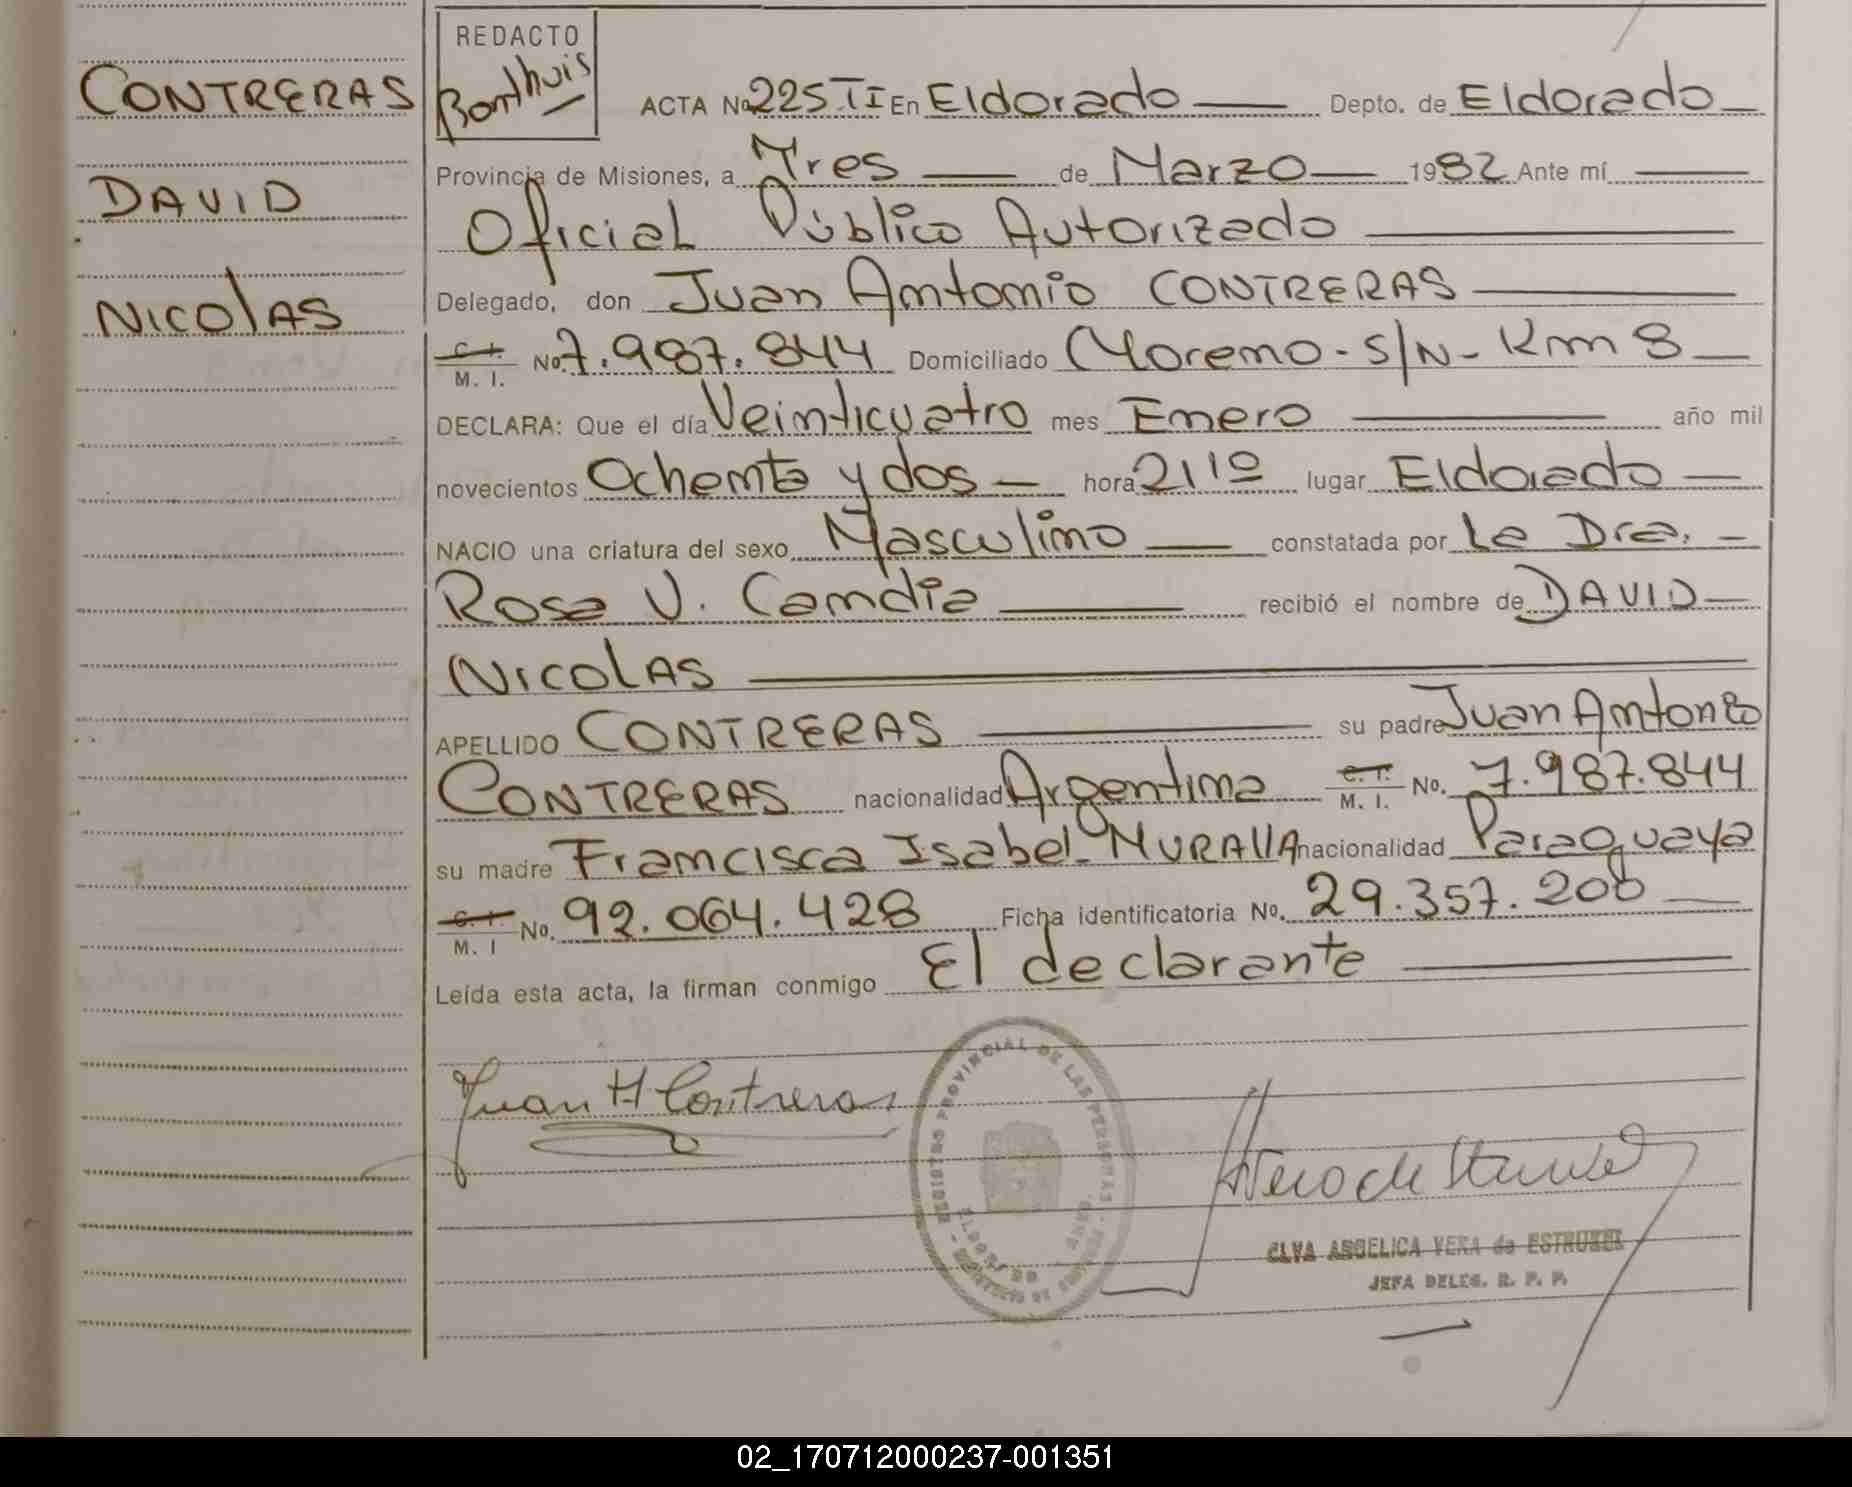 CONTRERAS
DAVID
NICOLAS
REDACTO
Bonthuis
ACTA No 225 TI En Eldorado Depto. de Eldorado
Provincia de Misiones, a Tres de Marzo 1982 Ante mí
Oficial Público Autorizado
Delegado, don Juan Antonio CONTRERAS
C. I. M. I. No. 7.987.844 Domiciliado Moreno - S/N - Km 8
DECLARA: Que el día Veinticuatro mes Enero año mil
novecientos Ochenta y dos hora 21 10 lugar Eldorado
NACIO una criatura del sexo Masculino constatada por La Dra.
Rosa V. Candia recibió el nombre de DAVID
NICOLAS
APELLIDO CONTRERAS su padre Juan Antonio
CONTRERAS nacionalidad Argentina C. I. M. I. No. 7.987.844
su madre Francisca Isabel MURALLA nacionalidad Paraguaya
C. I. M. I No. 92.064.428 Ficha identificatoria No. 29.357.200
Leída esta acta, la firman conmigo El declarante
Juan A Contreras
REGISTRO PROVINCIAL DE LAS PERSONAS
ELDORADO
ELVA ANGELICA VERA de ESTRUBEL
JEFA DELEG. R. P. P.
02_170712000237-001351